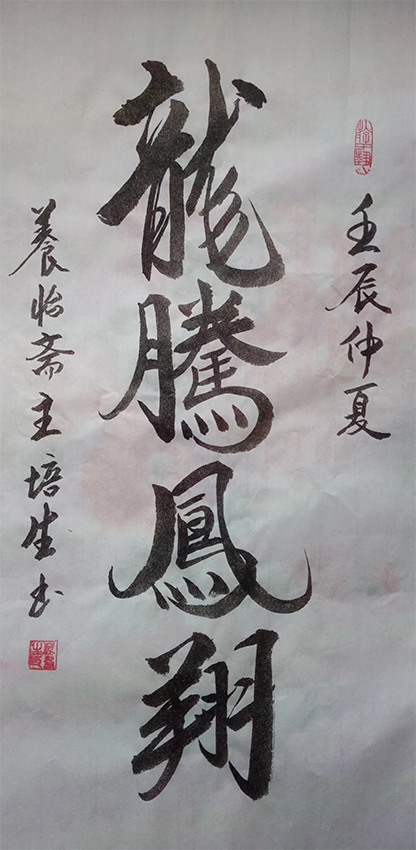 壬辰仲夏
龍騰鳳翔
養怡斋主培生书